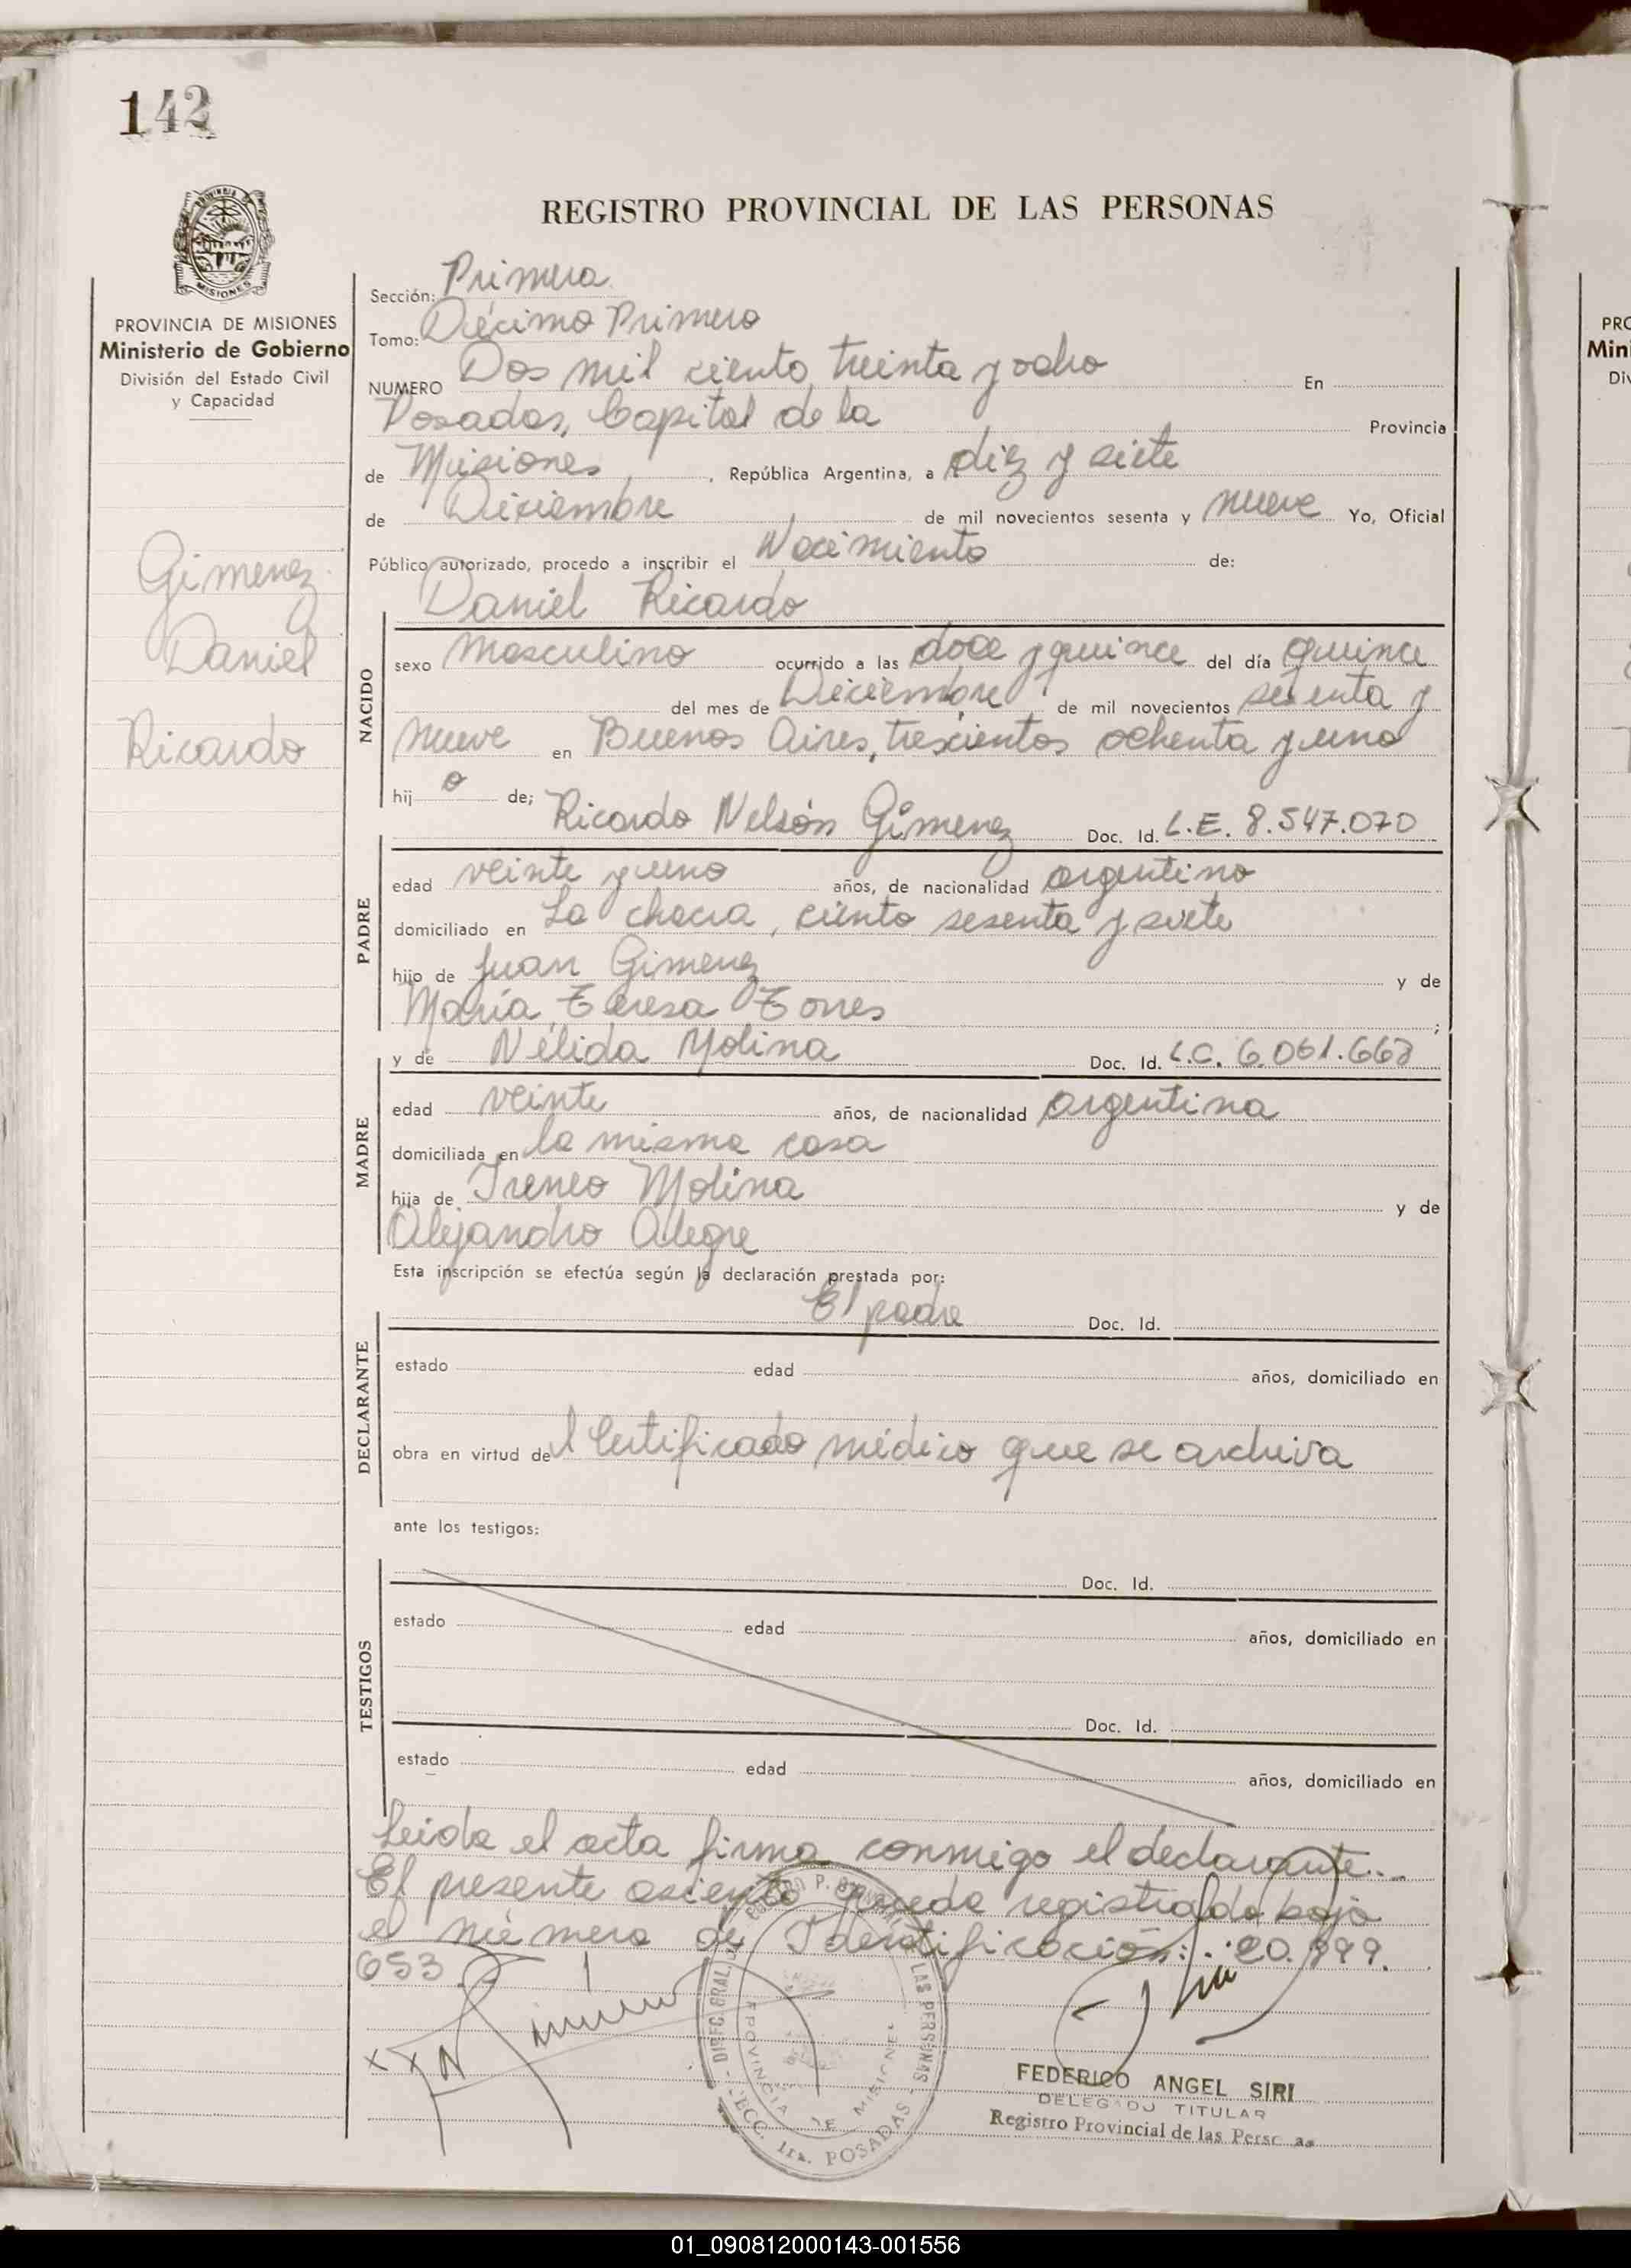 142
REGISTRO PROVINCIAL DE LAS PERSONAS
MISIONES
PROVINCIA DE MISIONES
Ministerio de Gobierno
División del Estado Civil
y Capacidad
Gimenez
Daniel
Ricardo
Sección: Primera
Tomo: Décimo Primero
NUMERO Dos mil ciento treinta y ocho En
Posadas, Capital de la Provincia
de Misiones, República Argentina, a diez y siete
de Diciembre de mil novecientos sesenta y nueve Yo, Oficial
Público autorizado, procedo a inscribir el Nacimiento de:
Daniel Ricardo
NACIDO
sexo Masculino ocurrido a las doce y quince del día quince
del mes de Diciembre de mil novecientos sesenta y
nueve en Buenos Aires, trescientos ochenta y uno
hijo de; Ricardo Nelsón Gimenez Doc. Id. L.E. 8.547.070
PADRE
edad veinte y uno años, de nacionalidad argentino
domiciliado en La chacra, ciento sesenta y siete
hijo de Juan Gimenez y de
María Teresa Torres;
y de Nélida Molina Doc. Id. L.C. 6.061.668
MADRE
edad veinte años, de nacionalidad argentina
domiciliada en la misma casa
hija de Ireneo Molina y de
Alejandro Alegre
Esta inscripción se efectúa según la declaración prestada por:
El padre Doc. Id.
DECLARANTE
estado edad años, domiciliado en
obra en virtud del Certificado médico que se archiva
ante los testigos:
TESTIGOS
Doc. Id.
estado edad años, domiciliado en
Doc. Id.
estado edad años, domiciliado en
Leida el acta firma conmigo el declarante..
El presente asiento queda registrado bajo
el número de Identificación: 20.999.
653
FEDERICO ANGEL SIRI
DELEGADO TITULAR
Registro Provincial de las Personas
DIREC. GRAL. LAS PERSONAS
PROVINCIA DE MISIONES
SECC. 1ra. POSADAS
PRO
Min
Div
01_090812000143-001556